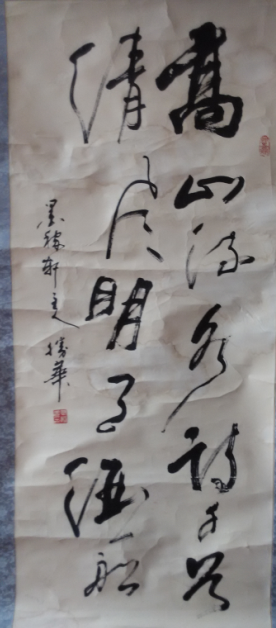 高山流水诗千首
清风明月酒一船
墨缘轩主人 勝華